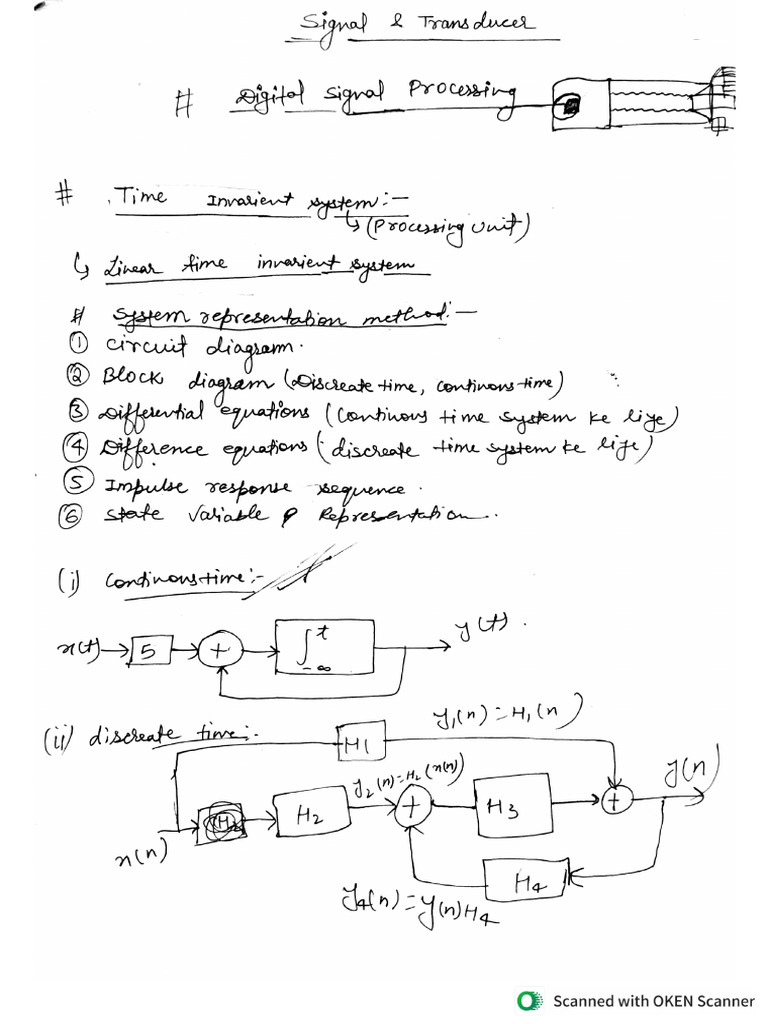 Signal & Transducer
# Digital Signal Processing
# Time Invarient system:-
↳ (Processing Unit)
↳ Linear time invarient system
# System representation method:-
① circuit diagram.
② Block diagram (Discreate time, continous time)
③ Differential equations (continous time system ke liye)
④ Difference equations (discreate time system ke liye)
⑤ Impulse response sequence.
⑥ State Variable Representation.
(i) continous time:-
x(t) 5 + ∫ t -∞ y(t).
(ii) discreate time:-
y₁(n) = H₁(n)
H1
y₂(n) = H₂(x(n))
y(n)
H₂ + H3 +
x(n)
H4
y₄(n) = y(n)H₄
Scanned with OKEN Scanner